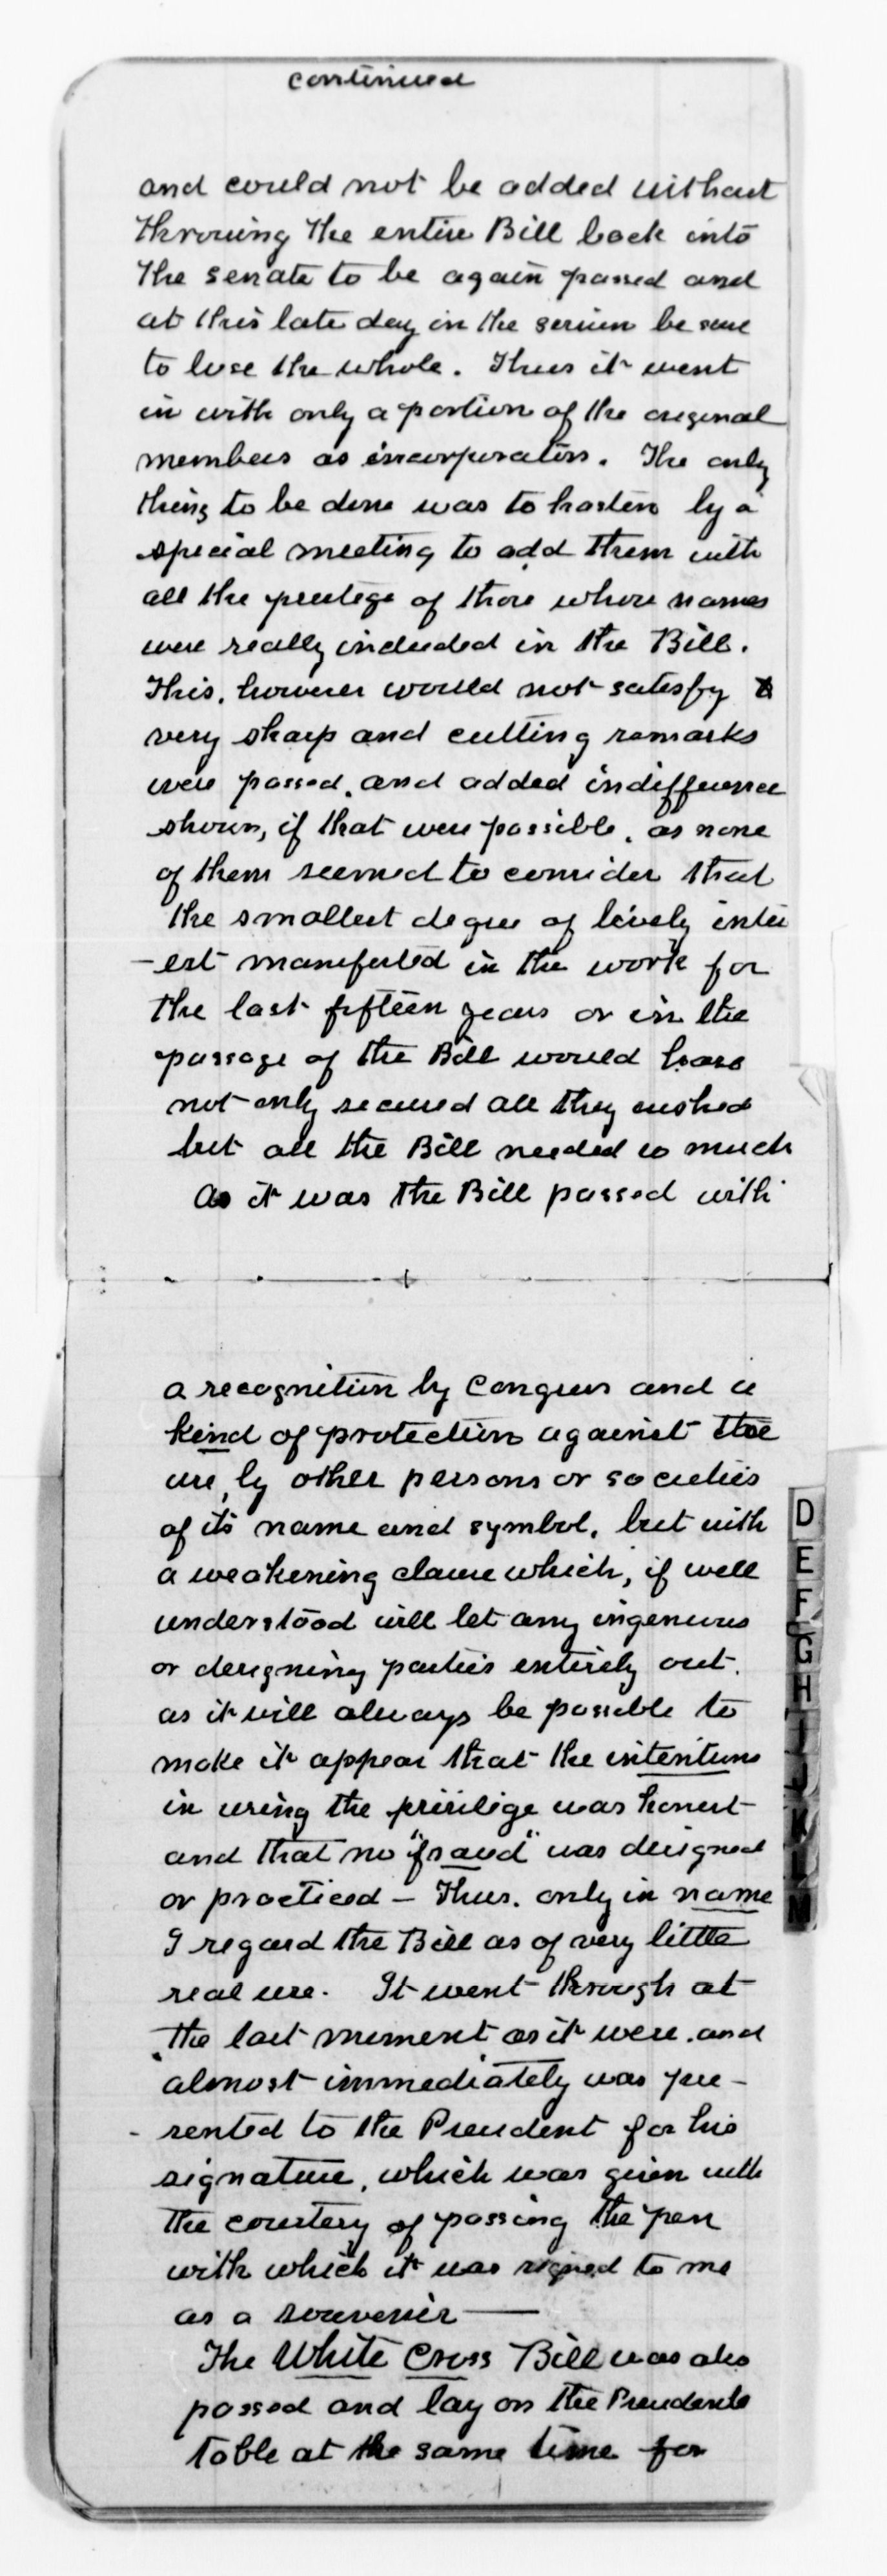 continued
and could not be added without
throwing the entire Bill back into
the senate to be again passed and
at this late day in the session be sure
to lose the whole. Thus it went
in with only a portion of the original
members as incorporators. The only
thing to be done was to hasten by a
special meeting to add them with
all the privilege of those whose names
were really included in the Bill.
This, however would not satisfy &
very sharp and cutting remarks
were passed, and added indifference
shown, if that were possible, as none
of them seemed to consider that
the smallest degree of lively inter
-est manifested in the work for
the last fifteen years or in the
passage of the Bill would have
not only secured all they wished
but all the Bill needed so much
As it was the Bill passed with
a recognition by Congress and a
kind of protection against the
use, by other persons or societies
of its name and symbol, but with
a weakening clause which, if well
understood will let any ingenious
or designing parties entirely out.
as it will always be possible to
make it appear that the intentions
in using the privilige was honest
and that no "fraud" was designed
or practiced – Thus. only in name
I regard the Bill as of very little
real use. It went through at
the last moment as it were. and
almost immediately was pre-
- sented to the President for his
signature, which was given with
the courtesy of passing the pen
with which it was signed to me
as a souvenir —
The White Cross Bill was also
passed and lay on the Presidents
table at the same time for
D
E
F
G
H
I
J
K
L
M